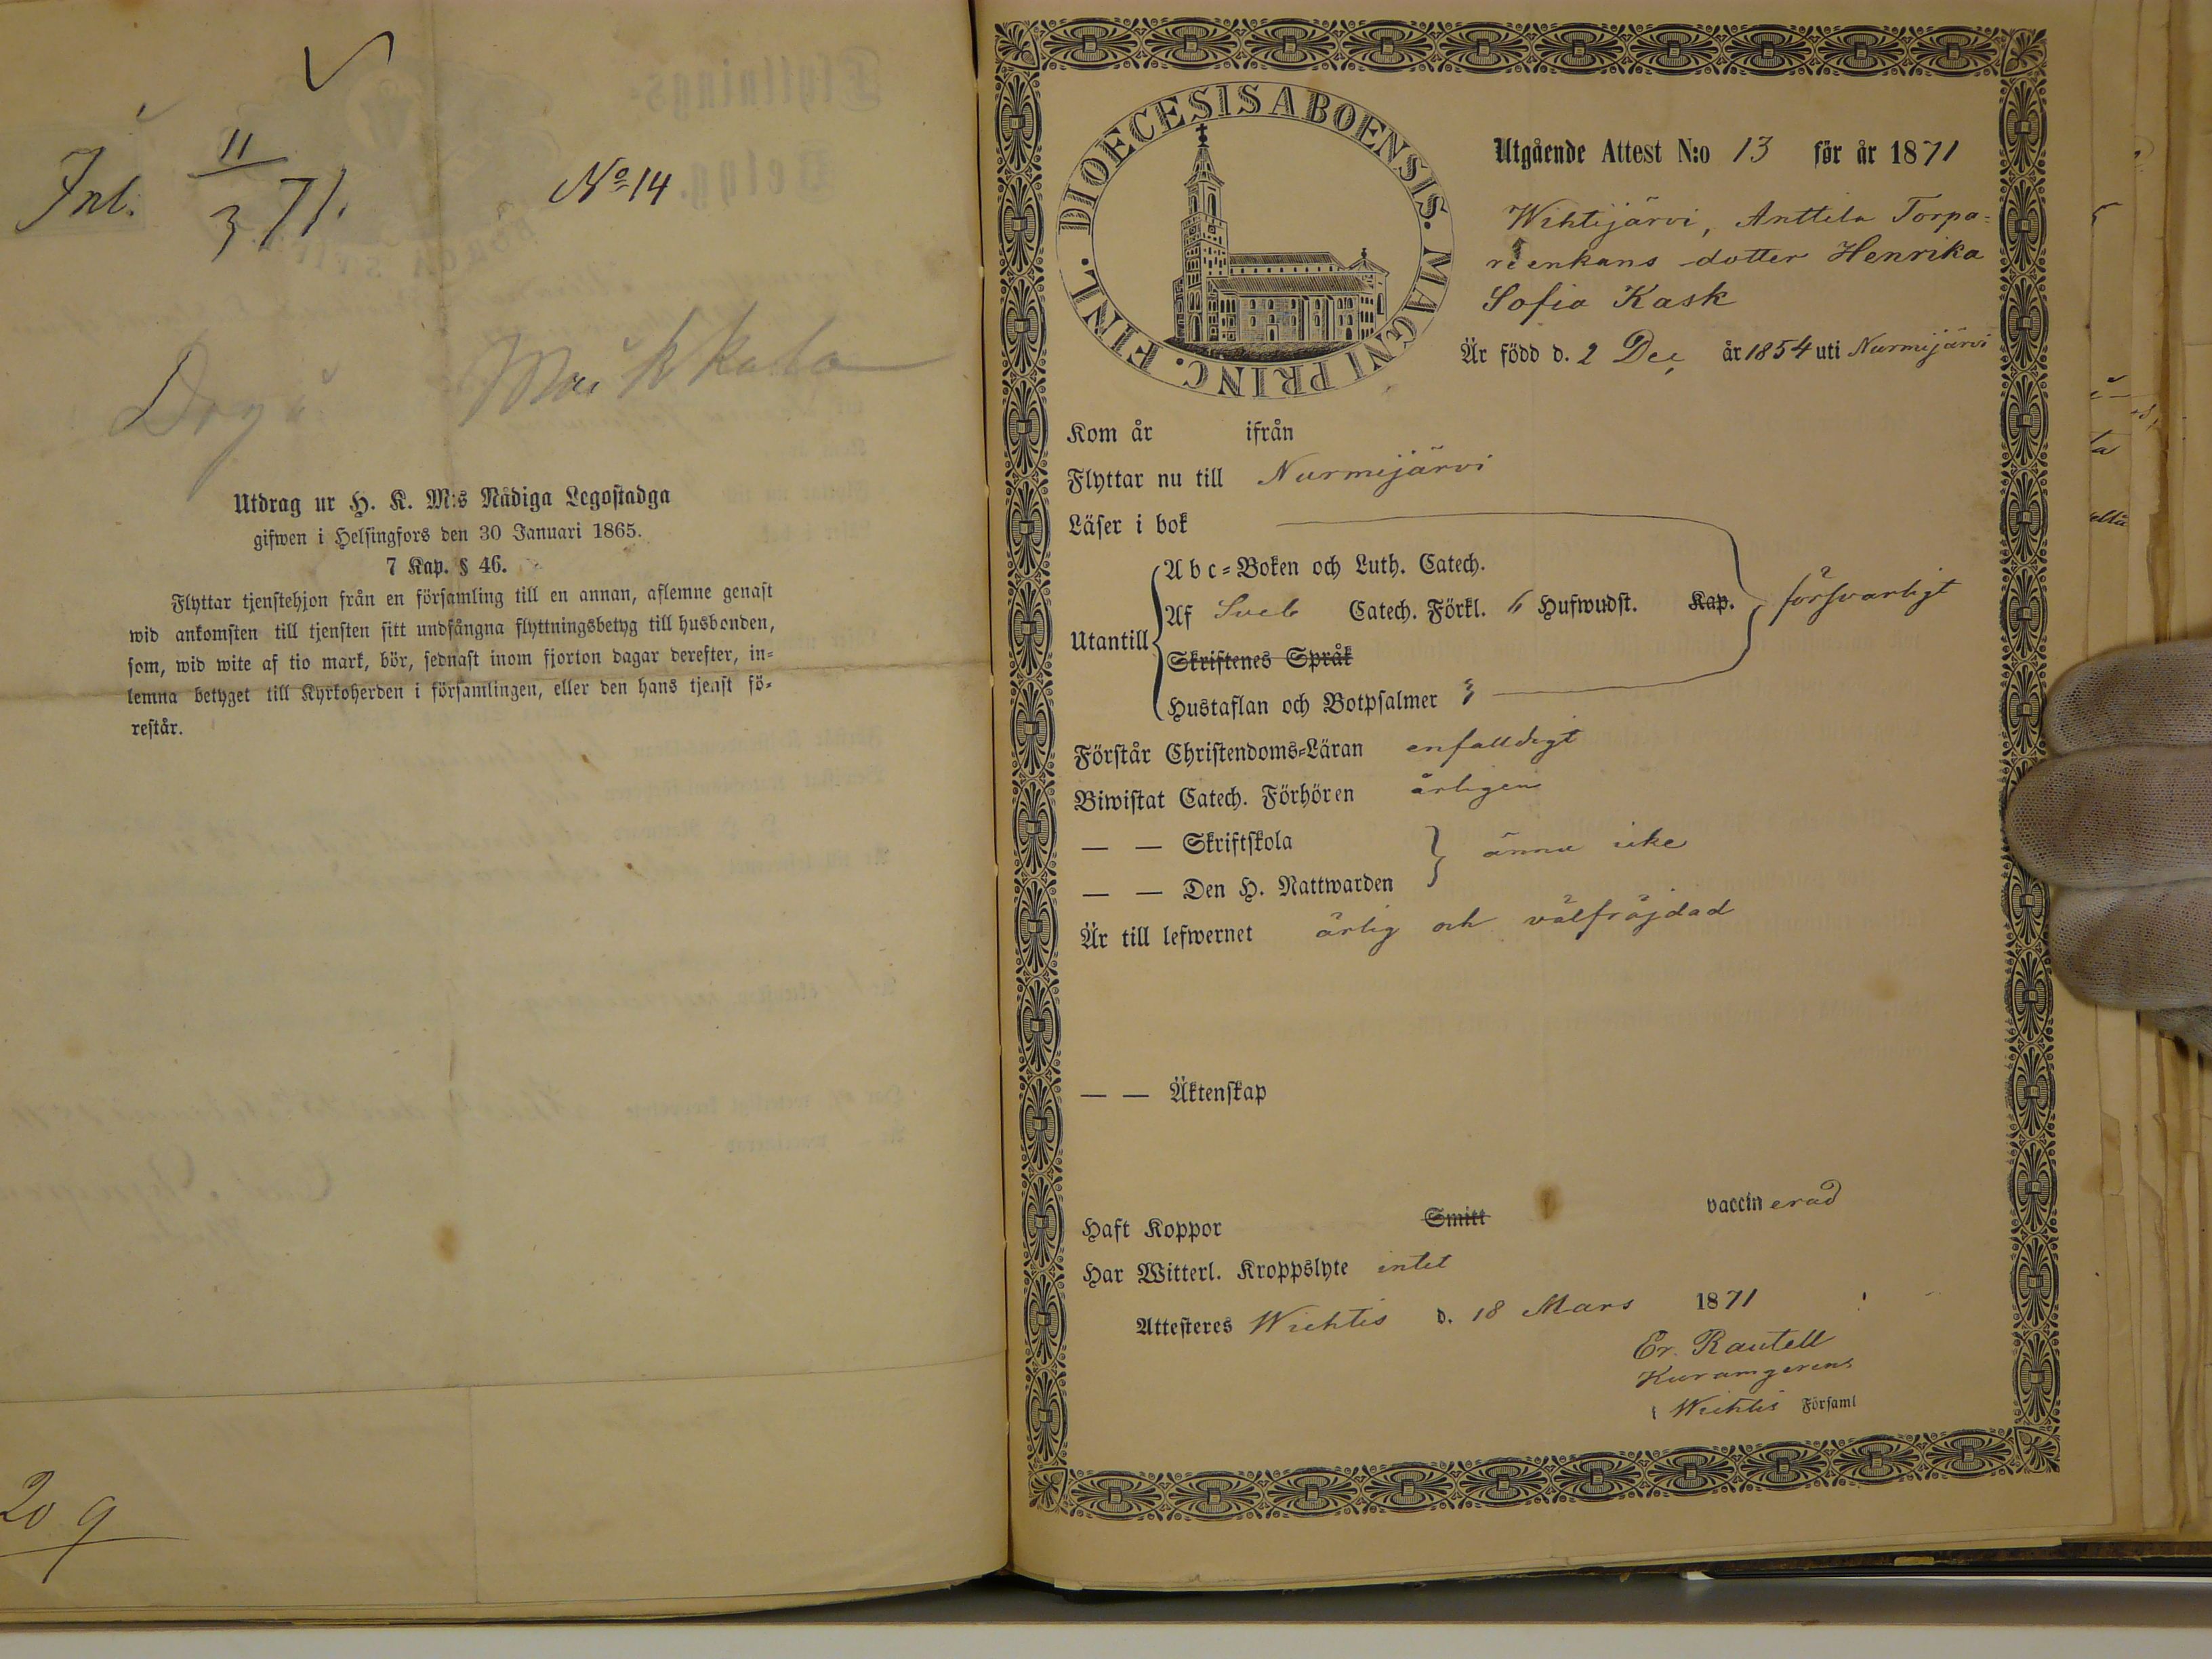 Inl. 11/3 71.
No 14
Utdrag ur H. K. M:s Nådiga Legostadga
gifwen i Helsingfors den 30 Januari 1865.
7 Kap. § 46.
Flyttar tjenstehjon från en församling till en annan, aflemne genast
wid ankomsten till tjensten sitt undfångna flyttningsbetyg till husbonden,
som, wid wite af tio mark, bör, sednast inom fjorton dagar derefter, in=
lemna betyget till Kyrkoherden i församlingen, eller den hans tjenst fö=
restår.
209
DIOECESIS ABOENSIS. MAGNI PRINC. FINL.
Utgående Attest N:o 13 för år 1871
Wihtijärvi, Anttila Torpa=
reenkans dotter Henrika
Sofia Kask
Är född d. 2 Dec, år 1854 uti Nurmijärvi
Kom år ifrån
Flyttar nu till Nurmijärvi
Läser i bok
Utantill
Abc=Boken och Luth. Catech.
Af Sveb Catech. Förkl. 6 Hufwudst. Kap. försvarligt
Skriftenes Språk
Hustaflan och Botpsalmer
Förstår Christendoms=Läran enfalldigt
Biwistat Catech. Förhören årligen
— — Skriftskola
ännu icke
— — Den H. Nattwarden
Är till lefwernet ärlig och välfräjdad
— — Äktenskap
Haft Koppor Smitt vaccinerad
Har Witterl. Kroppslyte intet
Attesteres Wichtis d. 18 Mars 1871
Er. Rautell
Kuramgerens
i Wichtis Församl